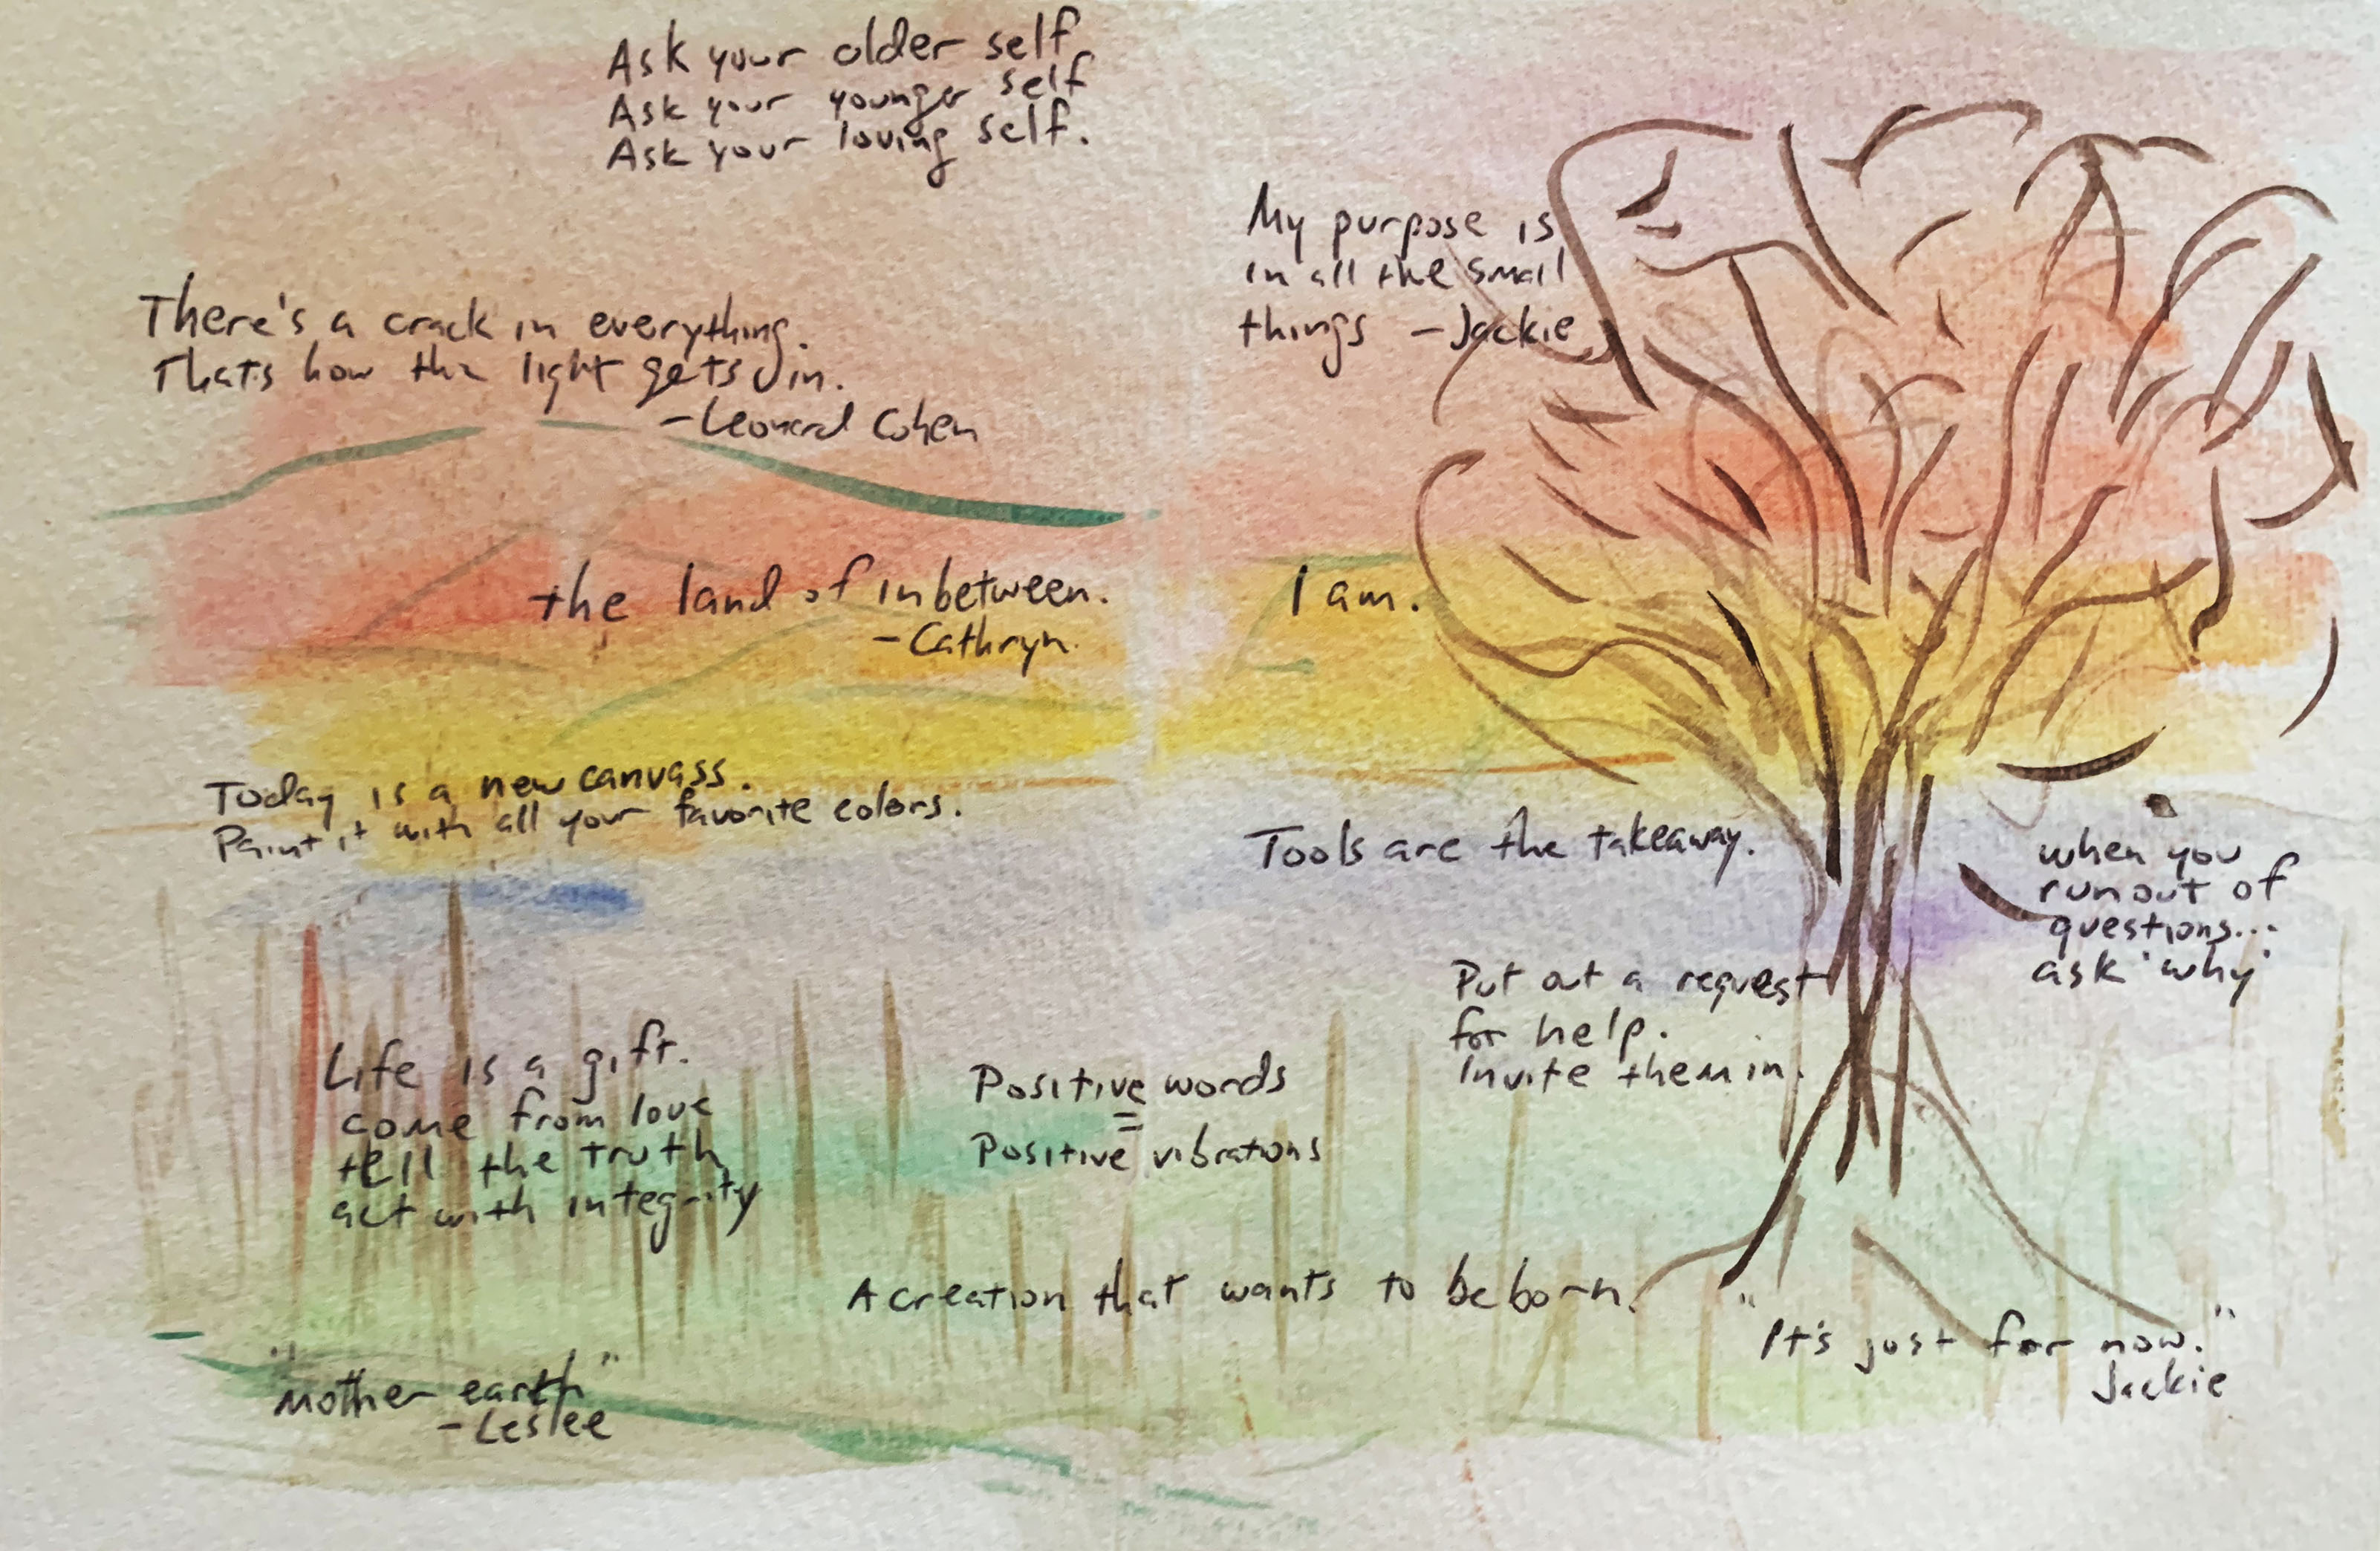 Ask your older self
Ask your younger self
Ask your loving self.
My purpose is
in all the small
things - Jackie
There's a crack in everything.
Thats how the light gets in.
- Leonard Cohen
the land of inbetween.
- Cathryn.
I am.
Today is a new canvass.
Paint it with all your favorite colors.
Tools are the takeaway.
when you
run out of
questions...
ask 'why'
Put out a request
for help.
Invite them in.
Life is a gift.
come from love
tell the truth
act with integrity
Positive words
=
Positive vibrations
A creation that wants to be born.
"It's just for now."
Jackie
"Mother earth"
- Leslee